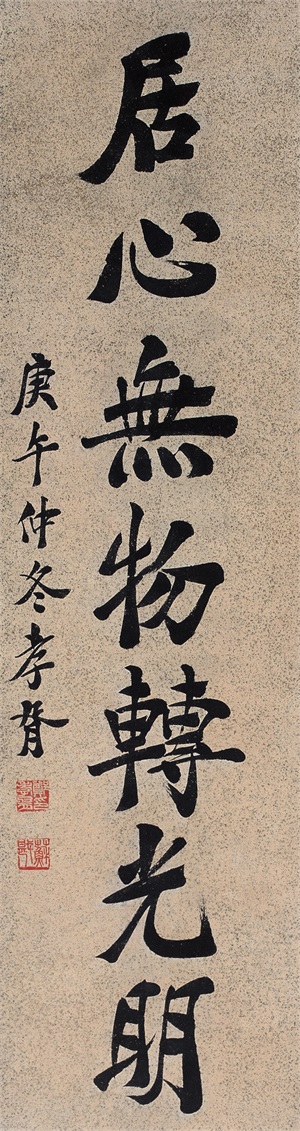 居心無物轉光明
庚午仲冬孝胥